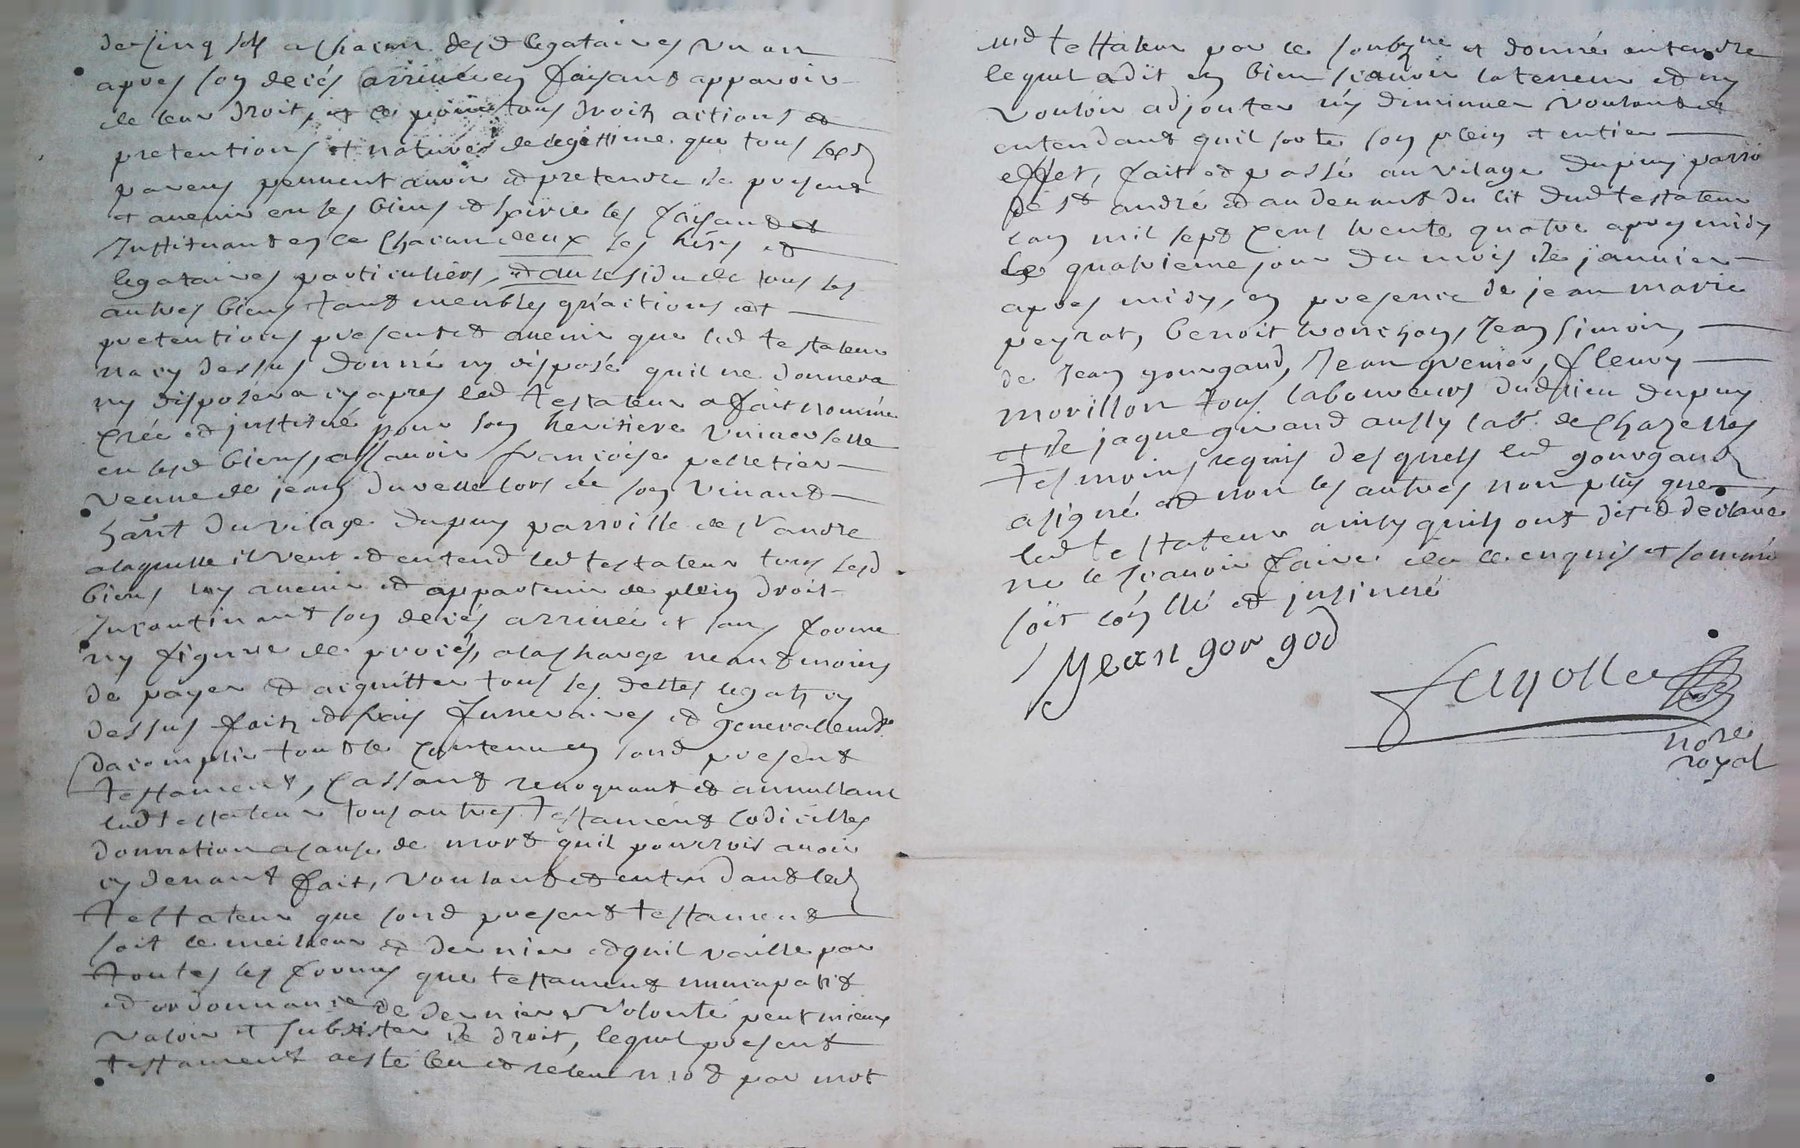 de sinq sols a chacun desd legataires un an
apres son decés arrivée en faisant apparoir
de leur droit, et ce pour tous droits actions et
pretentions et natures de legittime que tous lesd
parens peuvent avoir et pretendre de present
et avenir en ses biens et les faisant et
Instituant en ce chacun deux ses heirs et
legataires particuliers, et au residu de tous ses
autres biens tant meubles qu'actions et
pretentions present et avenir que led testateur
na cy dessus donné ny disposé quil ne donnera
ny disposera cy apres led testateur a fait nommé
créé et institué pour son heritiere universelle
en lesd biens, assavoir françoise pelletier
veuve de jean duvelle lors de son vivant
hant du vilage du puy parroisse de st andre
a laquelle il veut et entend led testateur tous sesd
biens luy avenir et appartenir de plein droit
Incontinant son decés arrivée et sans forme
ny figure de procés, a la charge neantmoins
de payer et aiquitter tous ses dettes legats cy
dessus faits et frais funeraires et generallemt
dacomplir tout le contenu en sond present
testament, cassant revoquant et annullant
led testateur tous autres testament codicilles
donnation a cause de mort quil pourrois avoir
cy devant fait, voulant et entendant led
testateur que sond present testament
soit le meilleur et dernier et quil vaille par
toutes les formes que testament nuncupatif
et ordonnance de derniere volonté peut mieux
valoir et subsister de droit, lequel present
testament a esté leu et releu mot par mot
aud testateur par le soubzne et donné entendre
lequel a dit en bien sçavoir la teneur et ny
vouloir adjouter ny diminuer voulant et
entendant quil sorte son plein et entier
effet, fait et passé au vilage du puy parrò
de st andré et au devant du lit dud testateur
lan mil sept cens trente quatre apres midy
le quatrieme jour du mois de janvier
apres midy, en presence de jean marie
peyrat, benoit tronchon, Jean simon,
de Jean gourgaud, Jean grenier, fleury
morillon tous laboureurs dud lieu du puy
et de jaque giraud aussy labr de Chazelles
tesmoins requis desquels led gourgaud
a signé et non les autres non plus que
led testateur ainsy quils ont dit et declaré
ne le sçavoir faire de ce enquis et sommé
soit conllé et insinué
Jean gor god
fayolle
nore
royal